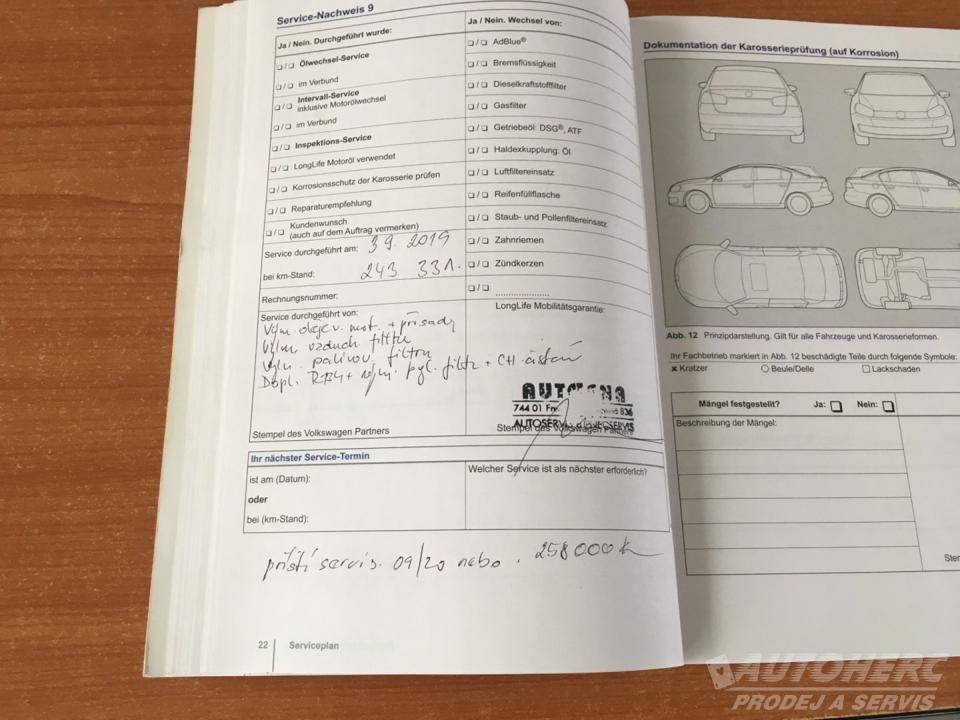 Service-Nachweis 9
Ja / Nein. Durchgeführt wurde:
❏ / ❏ Ölwechsel-Service
❏ / ❏ im Verbund
❏ / ❏ Intervall-Service
inklusive Motorölwechsel
❏ / ❏ im Verbund
❏ / ❏ Inspektions-Service
❏ / ❏ LongLife Motoröl verwendet
❏ / ❏ Korrosionsschutz der Karosserie prüfen
❏ / ❏ Reparaturempfehlung
❏ / ❏ Kundenwunsch
(auch auf dem Auftrag vermerken)
Service durchgeführt am: 3 9. 2019
bei km-Stand: 243 331.
Rechnungsnummer:
Service durchgeführt von:
Vým. oleje v. mot. + přísady
Vým. vzduch. filtru
Vým. palivov. filtru
Dopl. + pyl. filtr +
Stempel des Volkswagen Partners
Ja / Nein. Wechsel von:
❏ / ❏ AdBlue®
❏ / ❏ Bremsflüssigkeit
❏ / ❏ Dieselkraftstofffilter
❏ / ❏ Gasfilter
❏ / ❏ Getriebeöl: DSG®, ATF
❏ / ❏ Haldexkupplung: Öl
❏ / ❏ Luftfiltereinsatz
❏ / ❏ Reifenfüllflasche
❏ / ❏ Staub- und Pollenfiltereinsatz
❏ / ❏ Zahnriemen
❏ / ❏ Zündkerzen
❏ / ❏ ....................
LongLife Mobilitätsgarantie:
744 01 836
Stempel des Volkswagen Partners
Ihr nächster Service-Termin
ist am (Datum):
oder
bei (km-Stand):
Welcher Service ist als nächster erforderlich?
příští servis. 09/20 nebo . 258 000 k
22 Serviceplan
Dokumentation der Karosserieprüfung (auf Korrosion)
Abb. 12 Prinzipdarstellung. Gilt für alle Fahrzeuge und Karosserieformen.
Ihr Fachbetrieb markiert in Abb. 12 beschädigte Teile durch folgende Symbole:
x Kratzer ○ Beule/Delle ❏ Lackschaden
Mängel festgestellt? Ja: ❏ Nein: ❏
Beschreibung der Mängel:
AUTOHERC
PRODEJ A SERVIS